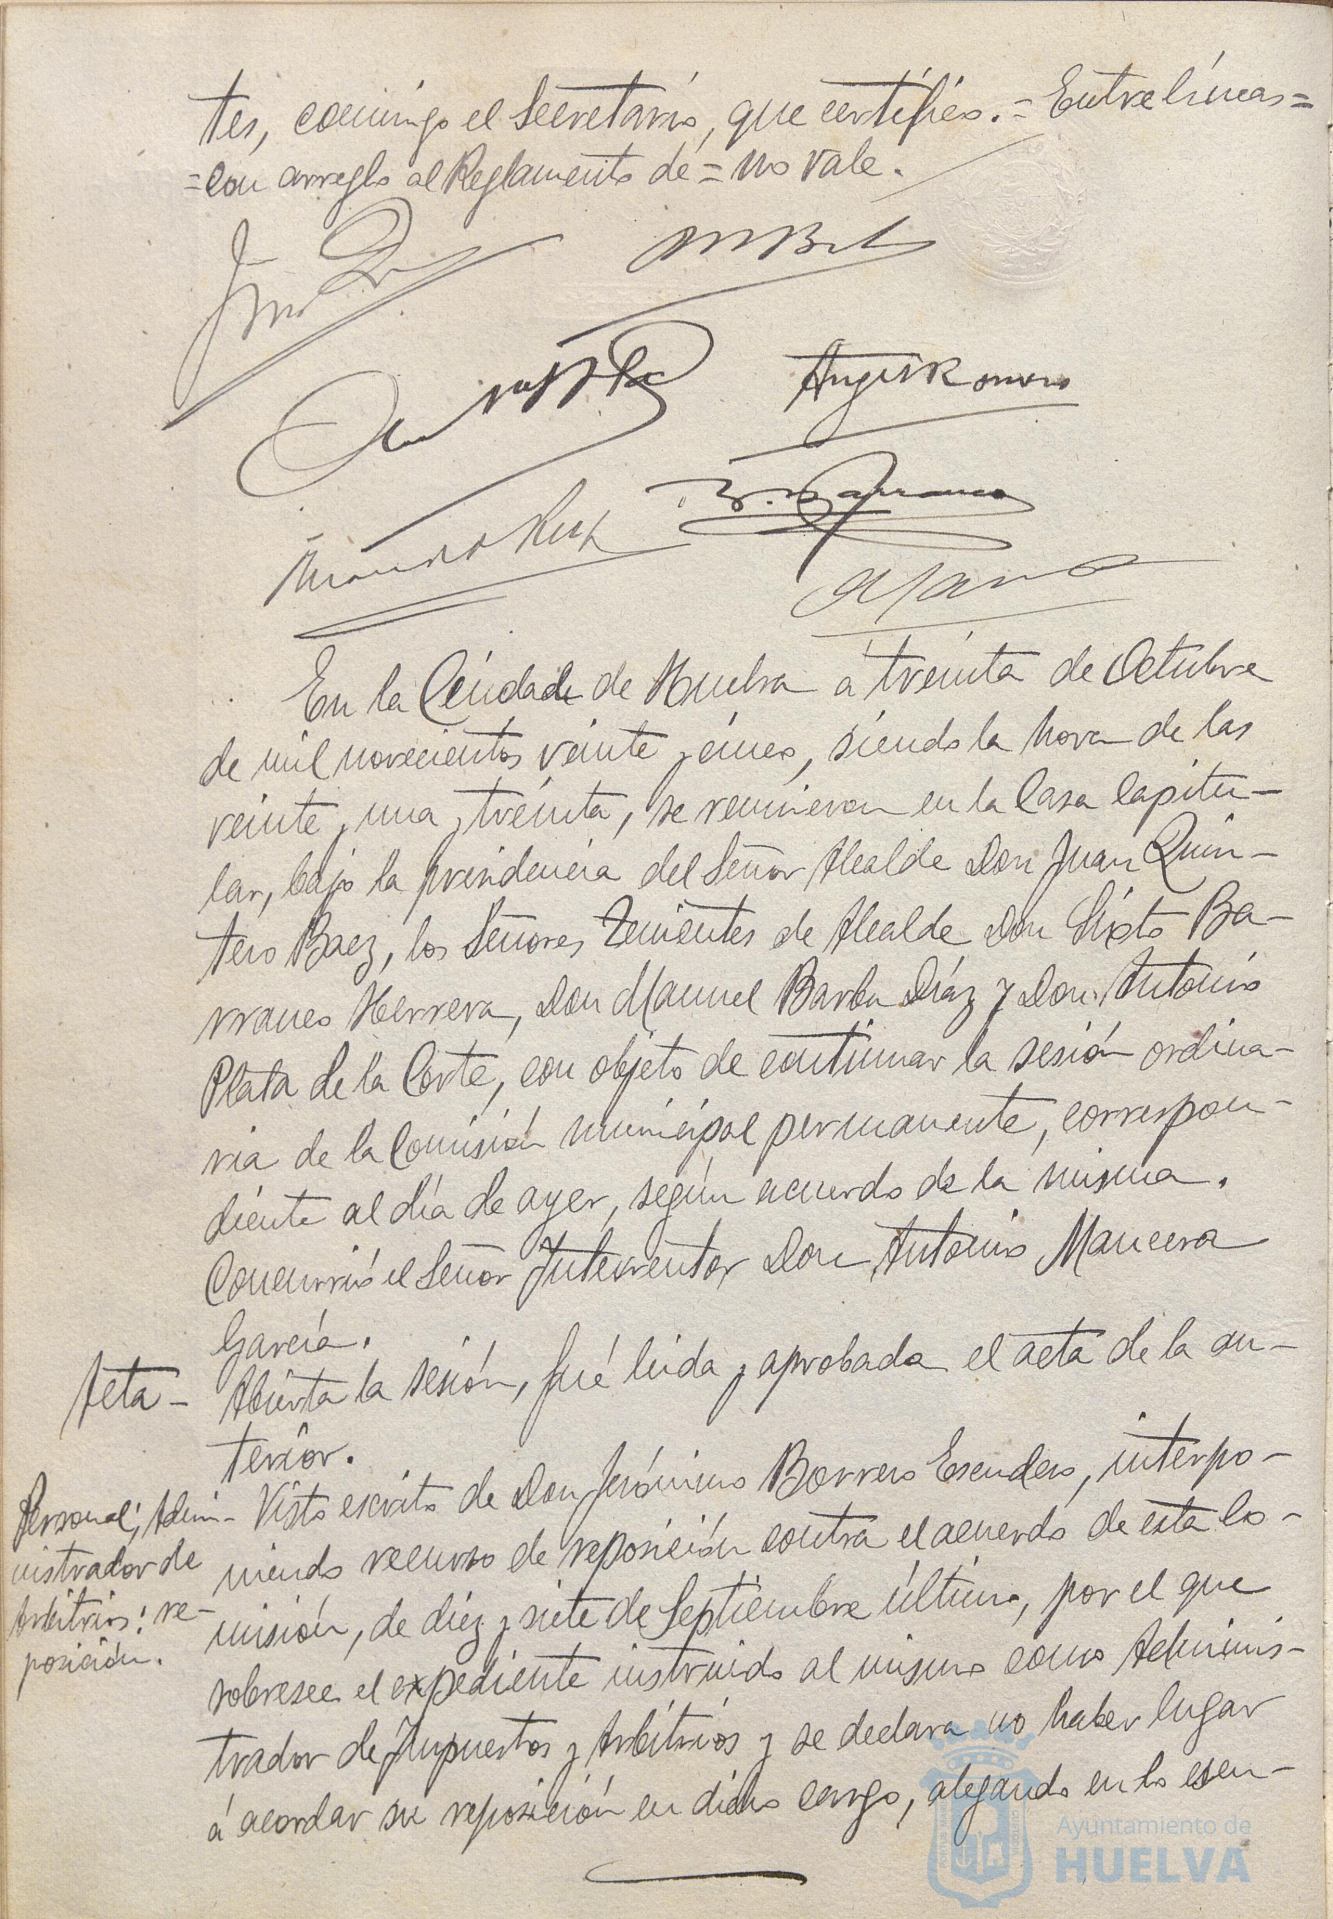 tes, conmigo el Secretario, que certifico.=Entre líneas=
=con arreglo al Reglamento de=no vale.
Angel Romero
En la Ciudad de Huelva a treinta de Octubre
de mil novecientos veinte y cinco, siendo la hora de las
veinte y una y treinta, se reunieron en la Casa Capitu-
lar, bajo la presidencia del Señor Alcalde Don Juan Quin-
tero Baez, los Señores Tenientes de Alcalde Don Sixto Ba-
rranco Herrera, Don Manuel Barba Díaz y Don Antonio
Plata de la Corte, con objeto de continuar la sesión ordina-
ria de la Comisión municipal permanente, correspon-
diente al día de ayer, según acuerdo de la misma.
Concurrió el Señor Interventor Don Antonio Mancera
García.
Acta- Abierta la sesión, fué leida y aprobada el acta de la an-
terior.
Personal; Admi-
nistrador de
Arbitrios: re-
posición.
Visto escrito de Don Jerónimo Borrero Escudero, interpo-
niendo recurso de reposición contra el acuerdo de esta Co-
misión, de diez y siete de Septiembre último, por el que
sobresee el expediente instruido al mismo como Adminis-
trador de Impuestos y Arbitrios y se declara no haber lugar
á acordar su reposición en dicho cargo, alegando en lo esen-
Ayuntamiento de
HUELVA